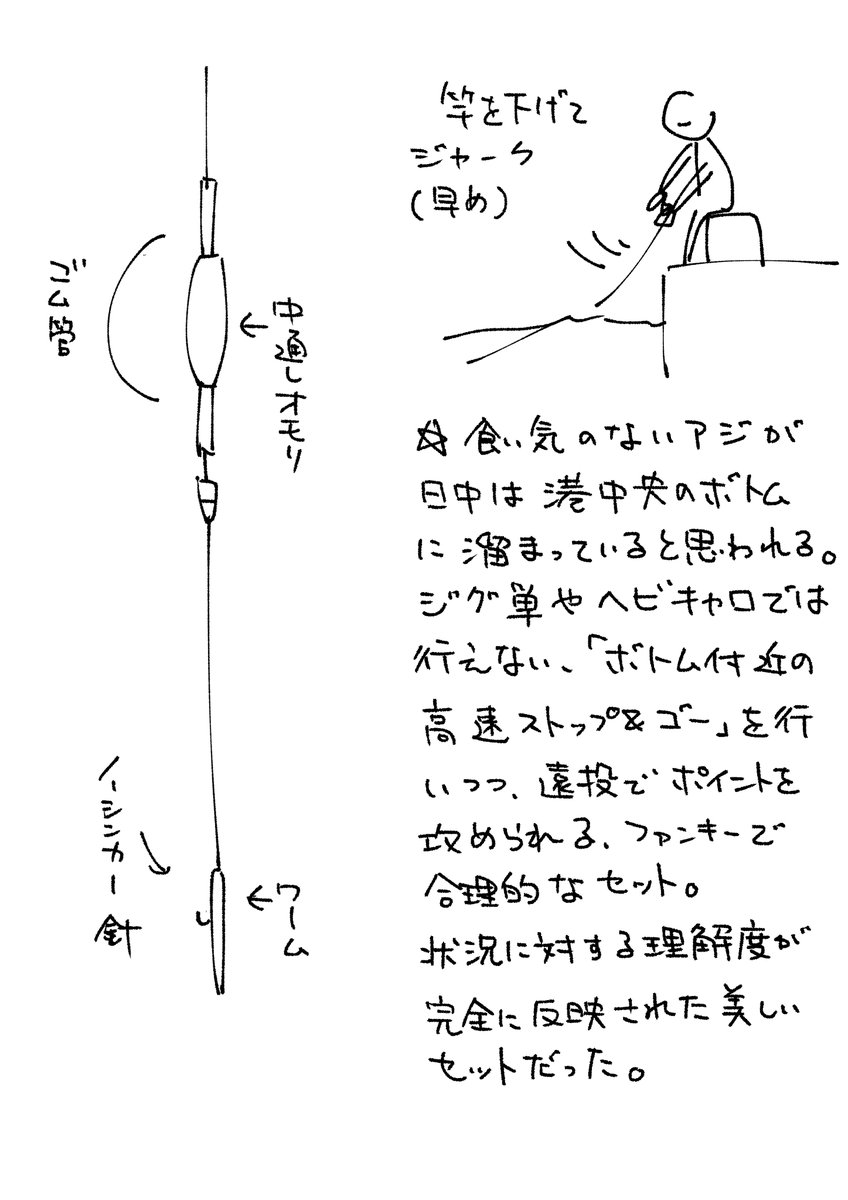 竿を下げて
ジャーク
(早め)
ゴム管
中通しオモリ
ノーシンカー針
ワーム
☆食い気のないアジが
日中は港中央のボトム
に溜まっていると思われる。
ジグ単やヘビキャロでは
行えない、「ボトム付近の
高速ストップ&ゴー」を行
いつつ、遠投でポイントを
攻められる、ファンキーで
合理的なセット。
状況に対する理解度が
完全に反映された美しい
セットだった。